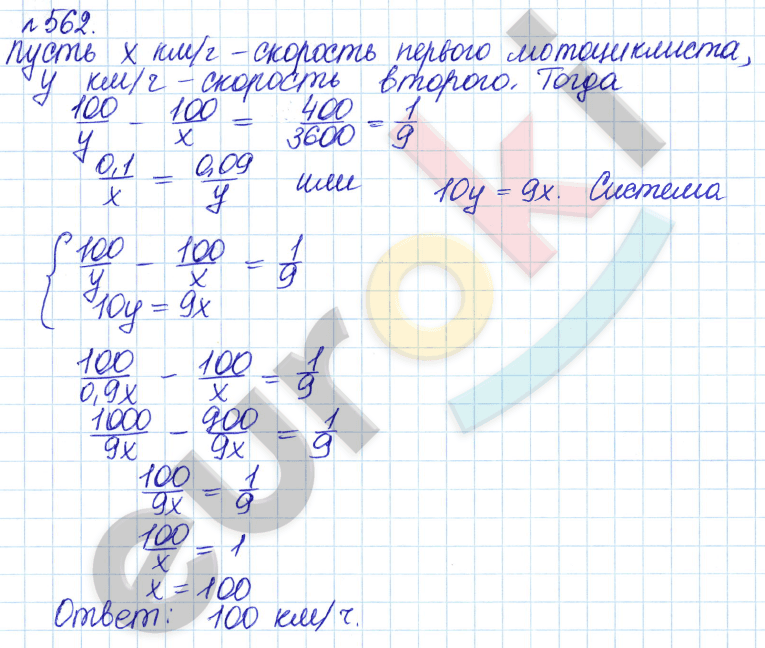 №562.
Пусть x км/г – скорость первого мотоциклиста,
y км/г – скорость второго. Тогда
100/y – 100/x = 400/3600 = 1/9
0,1/x = 0,09/y или 10y = 9x. Система
{ 100/y – 100/x = 1/9
10y = 9x
100/0,9x – 100/x = 1/9
1000/9x – 900/9x = 1/9
100/9x = 1/9
100/x = 1
x = 100
Ответ: 100 км/ч.
euroki